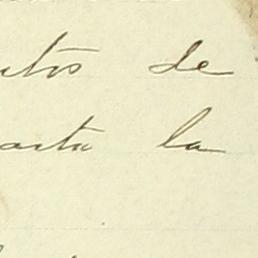 utos de
asta la